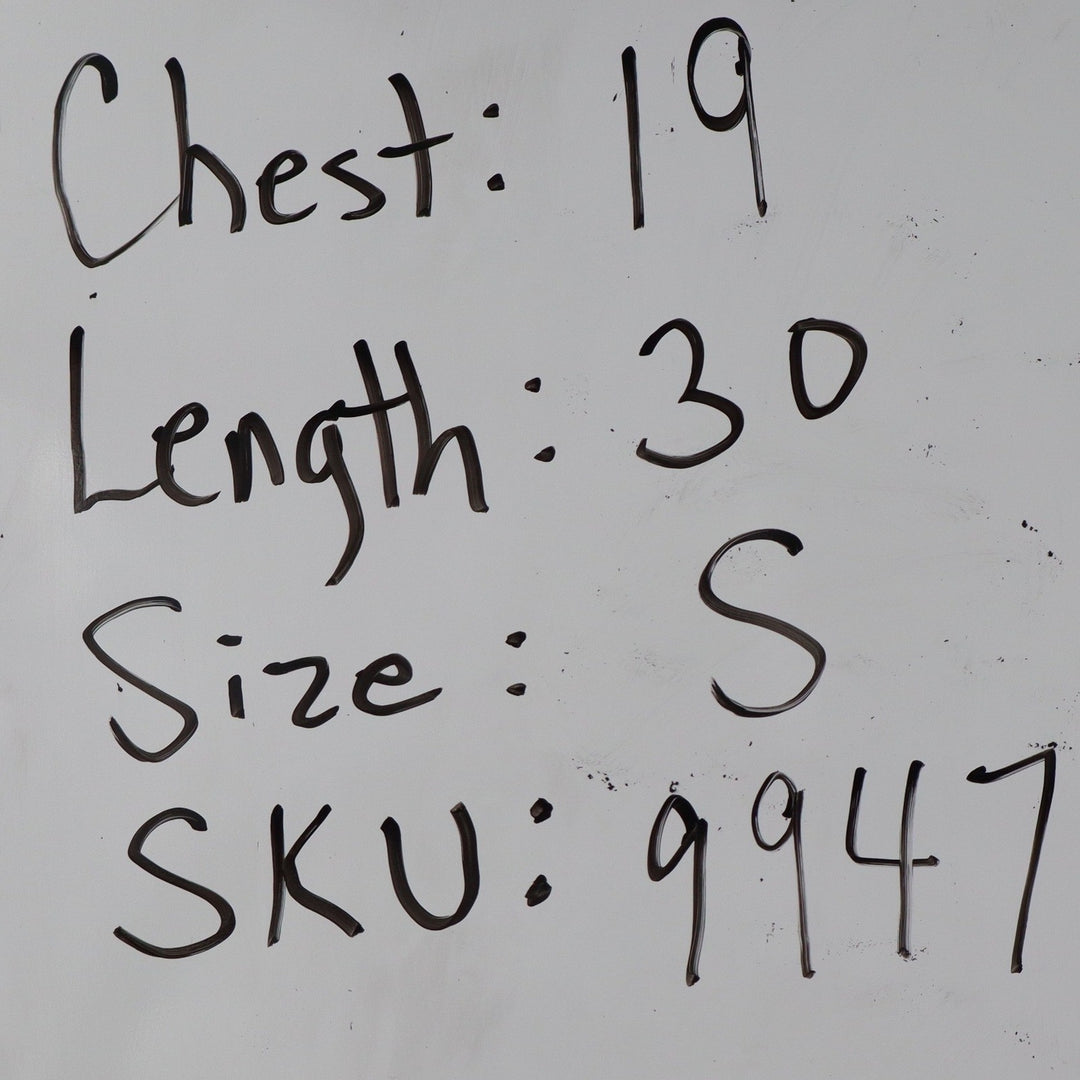 Chest: 19
Length: 30
Size: S
SKU: 9947